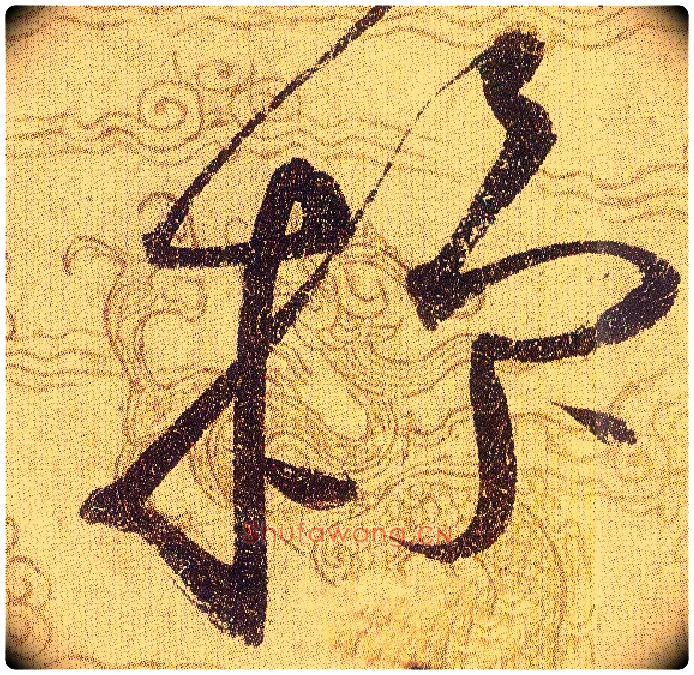 称
Shufawang.CN